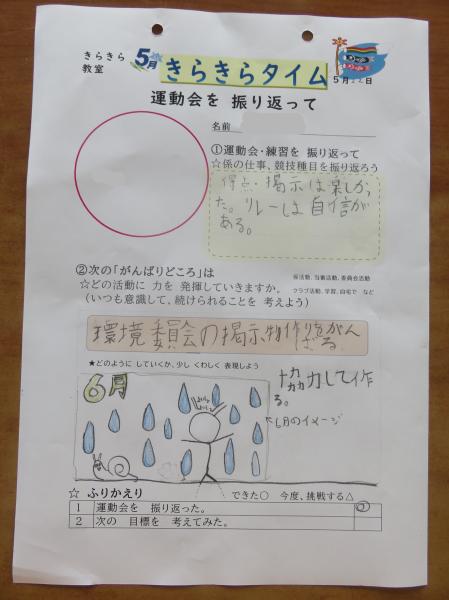 きらきら
教室
5月
きらきらタイム
5月22日
運動会を 振り返って
名前
①運動会・練習を 振り返って
☆係の仕事、競技種目を振り返ろう
得点・掲示は楽しかっ
た。リレーは自信が
ある。
②次の「がんばりどころ」は
係活動、当番活動、委員会活動
☆どの活動に 力を 発揮していきますか。
クラブ活動、学習、自宅で など
(いつも意識して、続けられることを 考えよう)
環境委員会の掲示物作りをがん
ばる
★どのように していくか、少し くわしく 表現しよう
協力して作
る。
6月
←6月のイメージ
☆ ふりかえり
できた○ 今度、挑戦する△
1 運動会を 振り返った。
2 次の 目標を 考えてみた。